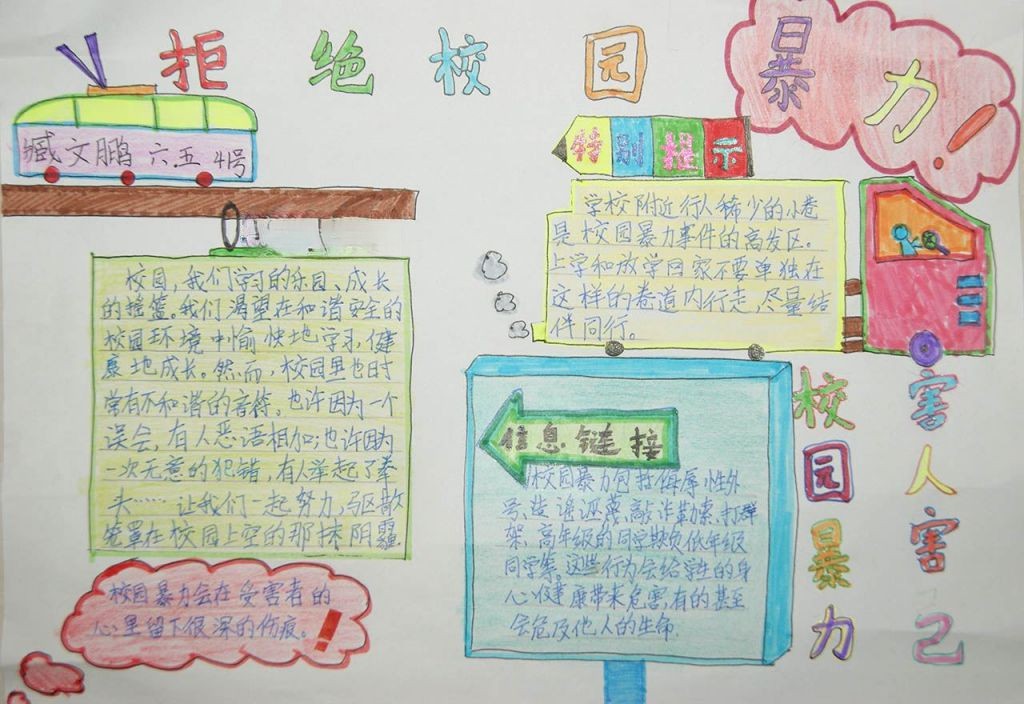 拒绝校园暴力！
臧文鹏 六五 41号
特别提示
学校附近行人稀少的小巷
是校园暴力事件的高发区。
上学和放学回家不要单独在
这样的巷道内行走，尽量结
伴同行。
校园，我们学习的乐园、成长
的摇篮。我们渴望在和谐安全的
校园环境中愉快地学习，健
康地成长。然而，校园里也时
常有不和谐的音符。也许因为一个
误会，有人恶语相加；也许因为
一次无意的犯错，有人举起了拳
头……让我们一起努力，驱散
笼罩在校园上空的那抹阴霾
校园暴力会在受害者的
心里留下很深的伤疤。！
信息链接
校园暴力包括侮辱性外
号、造谣诬蔑、敲诈勒索、打群
架、高年级的同学欺负低年级
同学等。这些行为会给学生的身
心健康带来危害，有的甚至
会危及他人的生命.
校园暴力
害人害己